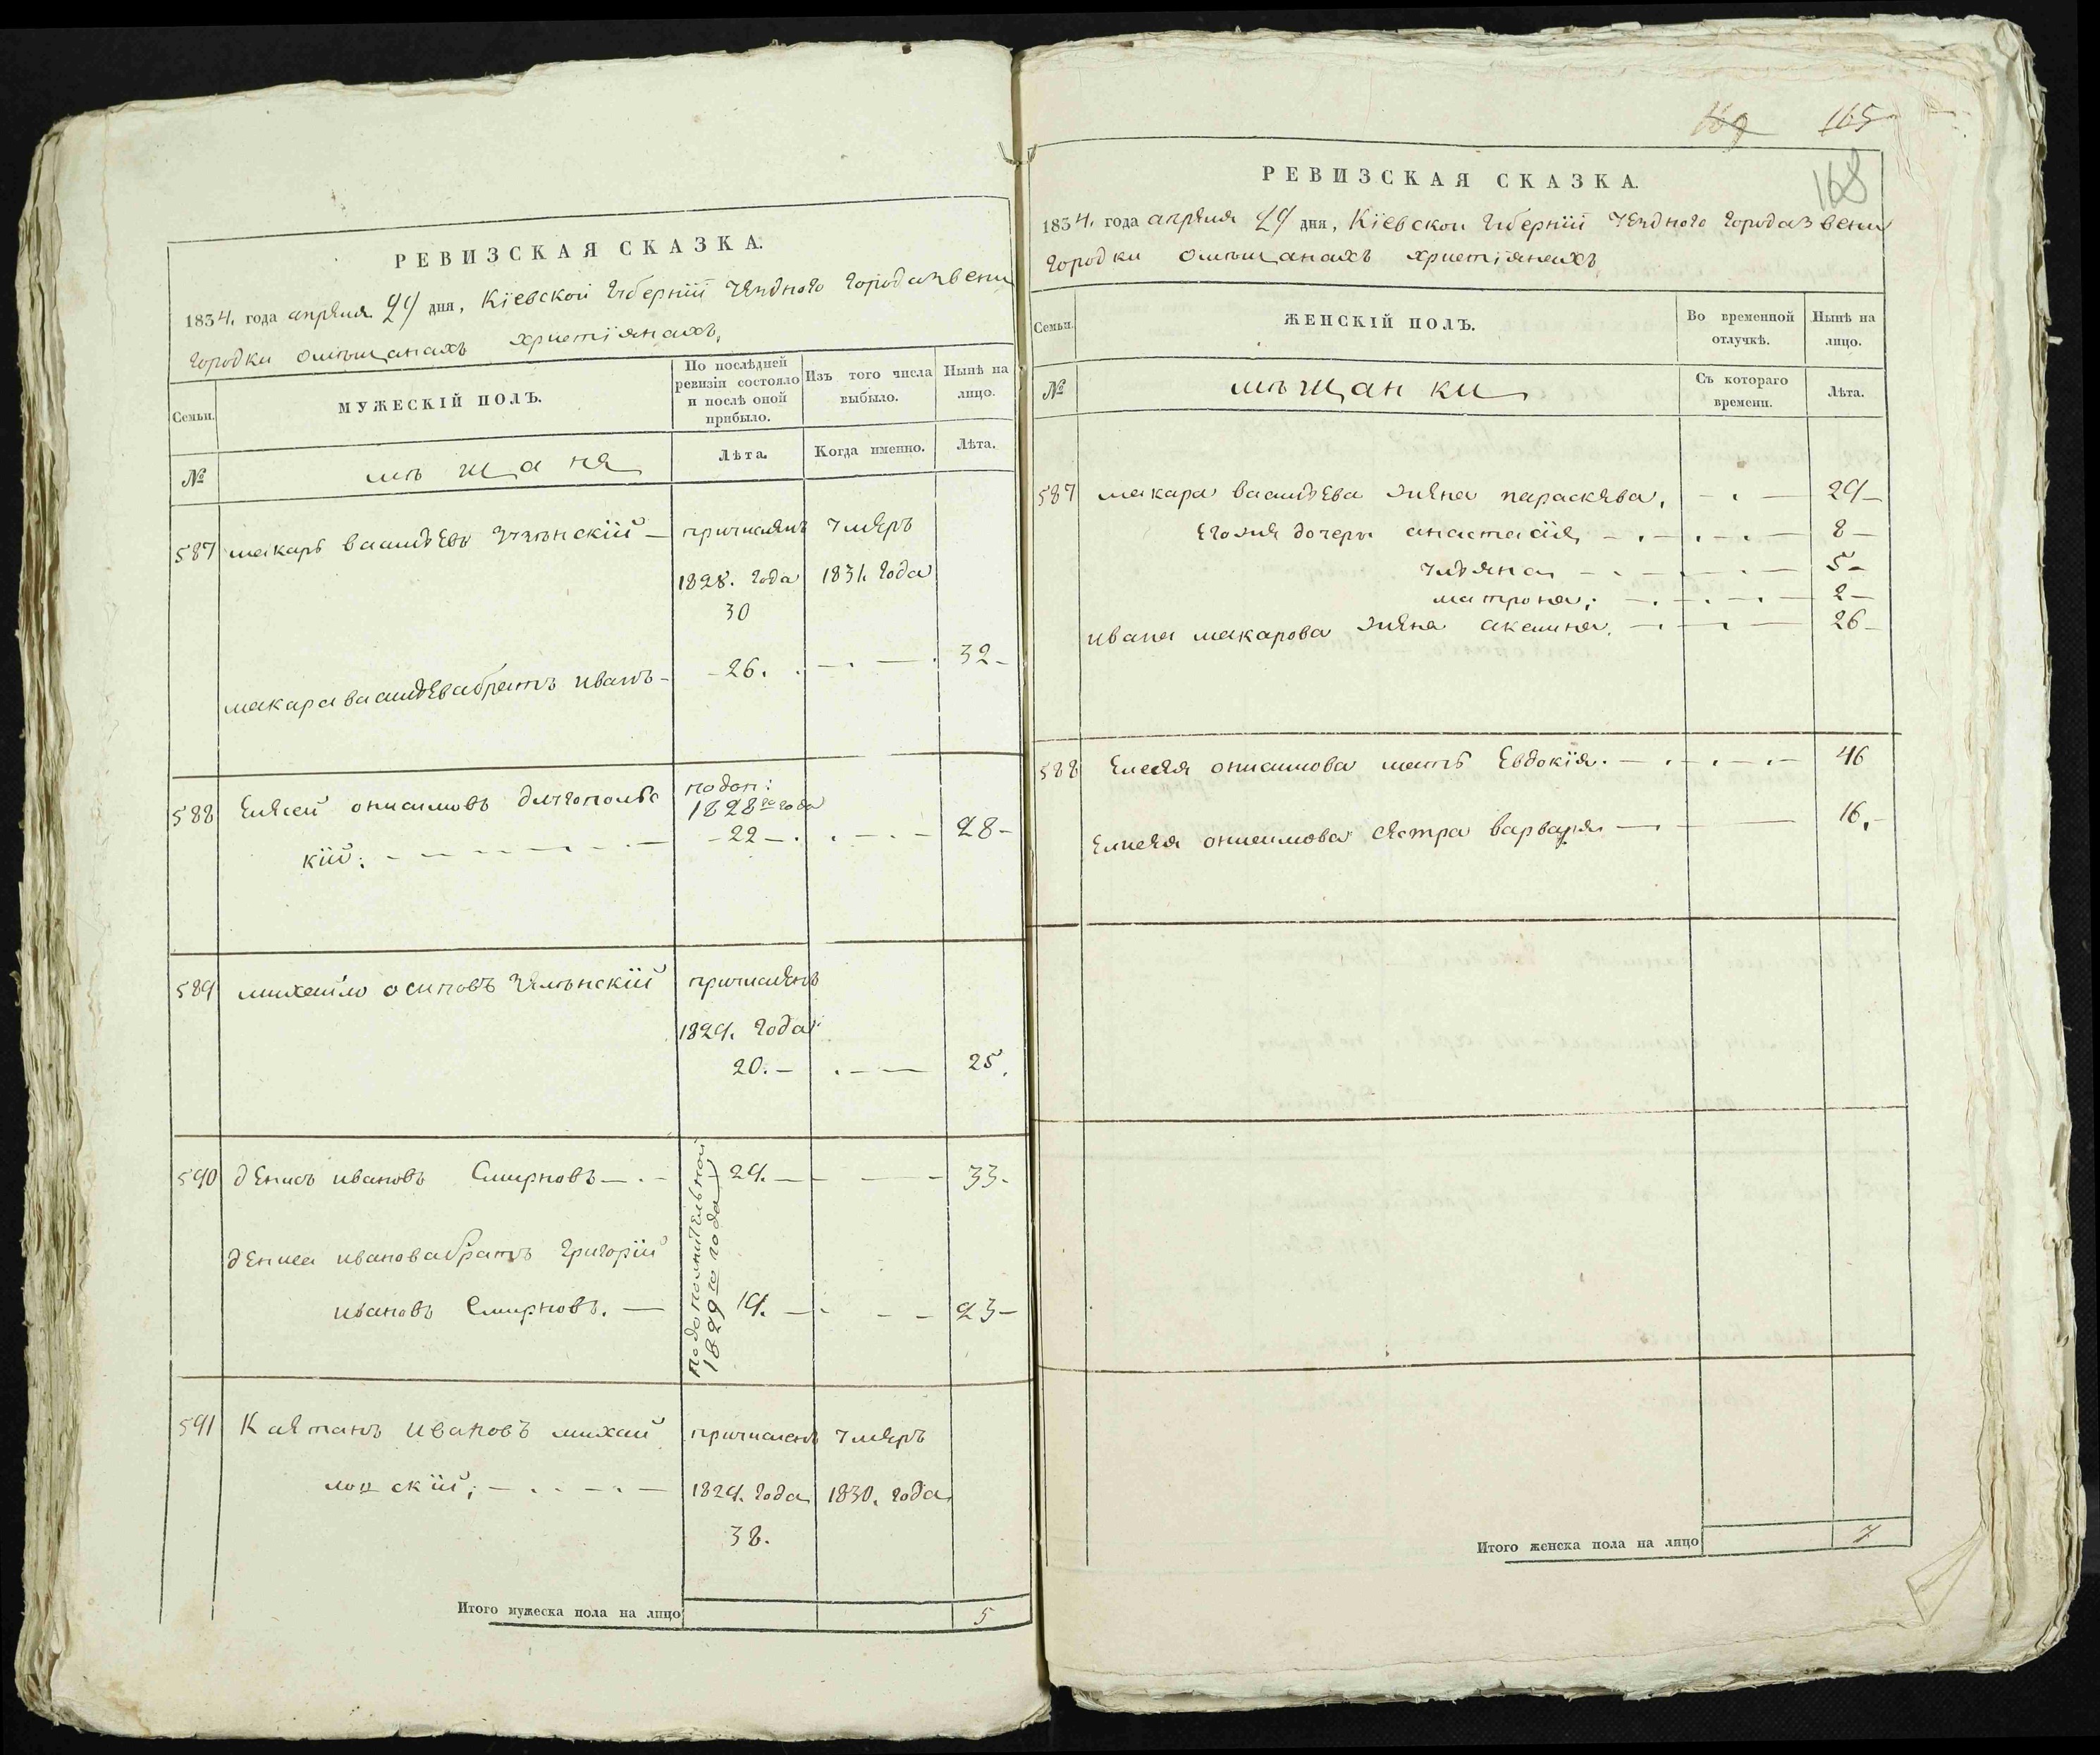 РЕВИЗСКАЯ СКАЗКА.
1834. года апреля 29 дня, Кіевской Губерніи уездного города звени
городки омѣщанахъ христіянахъ,
Семьи.
МУЖЕСКІЙ ПОЛЪ.
По послѣдней
ревизіи состояло
и послѣ оной
прибыло.
Изъ того числа
выбыло.
Нынѣ на
лицо.
№
мѣщаня
Лѣта.
Когда именно.
Лѣта.
587 макаръ василѣевъ — причисленъ умеръ
1828. года 1831. года
30
макара василѣева братъ иванъ - 26. 32
588 Елисей онисимовъ
подоп:
1828го года
кій: 22 28
589 михайло осиповъ причисленъ
1829. года
20. 25.
590 денисъ ивановъ Смирновъ 29. 33
дениса иванова братъ григорій
ивановъ Смирновъ. 19. 23
подополнительной
1829го года
591 Каетанъ ивановъ михай причисленъ умеръ
ловскій; 1829. года 1830. года
38.
Итого мужеска пола на лицо 5
169 165
168
РЕВИЗСКАЯ СКАЗКА.
1834. года апреля 29 дня, Кіевской Губерніи уездного города звени
городки омѣщанахъ христіянахъ
Семьи.
ЖЕНСКІЙ ПОЛЪ.
Во временной
отлучкѣ.
Нынѣ на
лицо.
№
мѣщанки
Съ котораго
времени.
Лѣта.
587 макара василѣева жена параскева, 29
его же дочери анастасія 8
улѣяна 5
матрона; 2
ивана макарова жена акелина. 26
588 Елисея онисимова мать Евдокія. 46
Елисея онисимова сестра варвара 16.
Итого женска пола на лицо 7